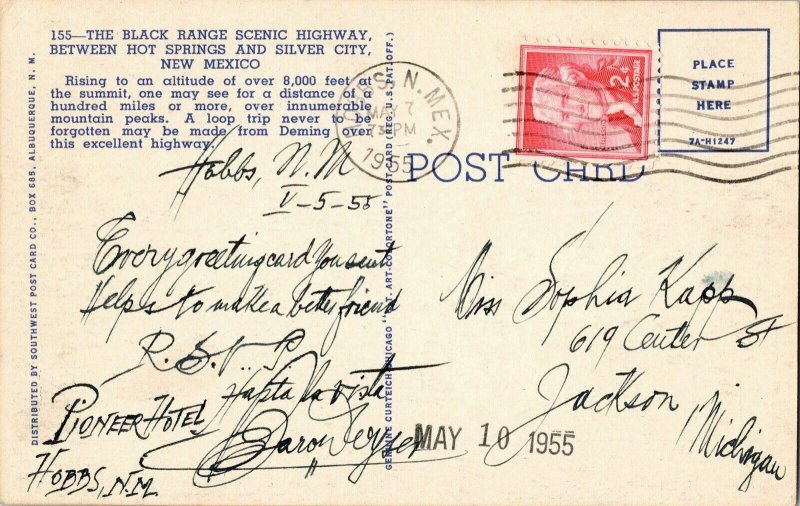 155—THE BLACK RANGE SCENIC HIGHWAY,
BETWEEN HOT SPRINGS AND SILVER CITY,
NEW MEXICO
Rising to an altitude of over 8,000 feet at
the summit, one may see for a distance of a
hundred miles or more, over innumerable
mountain peaks. A loop trip never to be
forgotten may be made from Deming over
this excellent highway.
DISTRIBUTED BY SOUTHWEST POST CARD CO., BOX 685, ALBUQUERQUE, N. M.
GENUINE CURTEICH-CHICAGO "C.T. ART-COLORTONE" POST CARD (REG. U.S. PAT. OFF.)
HOBBS, N. MEX.
MAY 7
PM
1955
2¢
U.S. POSTAGE
PLACE
STAMP
HERE
7A-H1247
POST CARD
Hobbs, N.M
V-5-55
Every greeting card You sent
Helps to make a better friend
R.S.V.P
Hasta la vista
Baron
PIONEER HOTEL
HOBBS, N.M.
Miss Sophia Kapp
619 Center St
Jackson
Michigan
MAY 10 1955